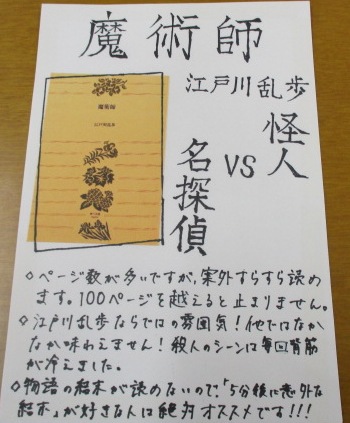 魔術師
江戸川乱歩
怪人
VS
名探偵
魔術師
江戸川乱歩
◇ページ数が多いですが、案外すらすら読め
ます。100ページを越えると止まりません。
◇江戸川乱歩ならではの雰囲気！他ではなか
なか味わえません！殺人のシーンは毎回背筋
が冷えました。
◇物語の結末が読めないので、「5分後に意外な
結末」が好きな人は絶対オススメです！！！